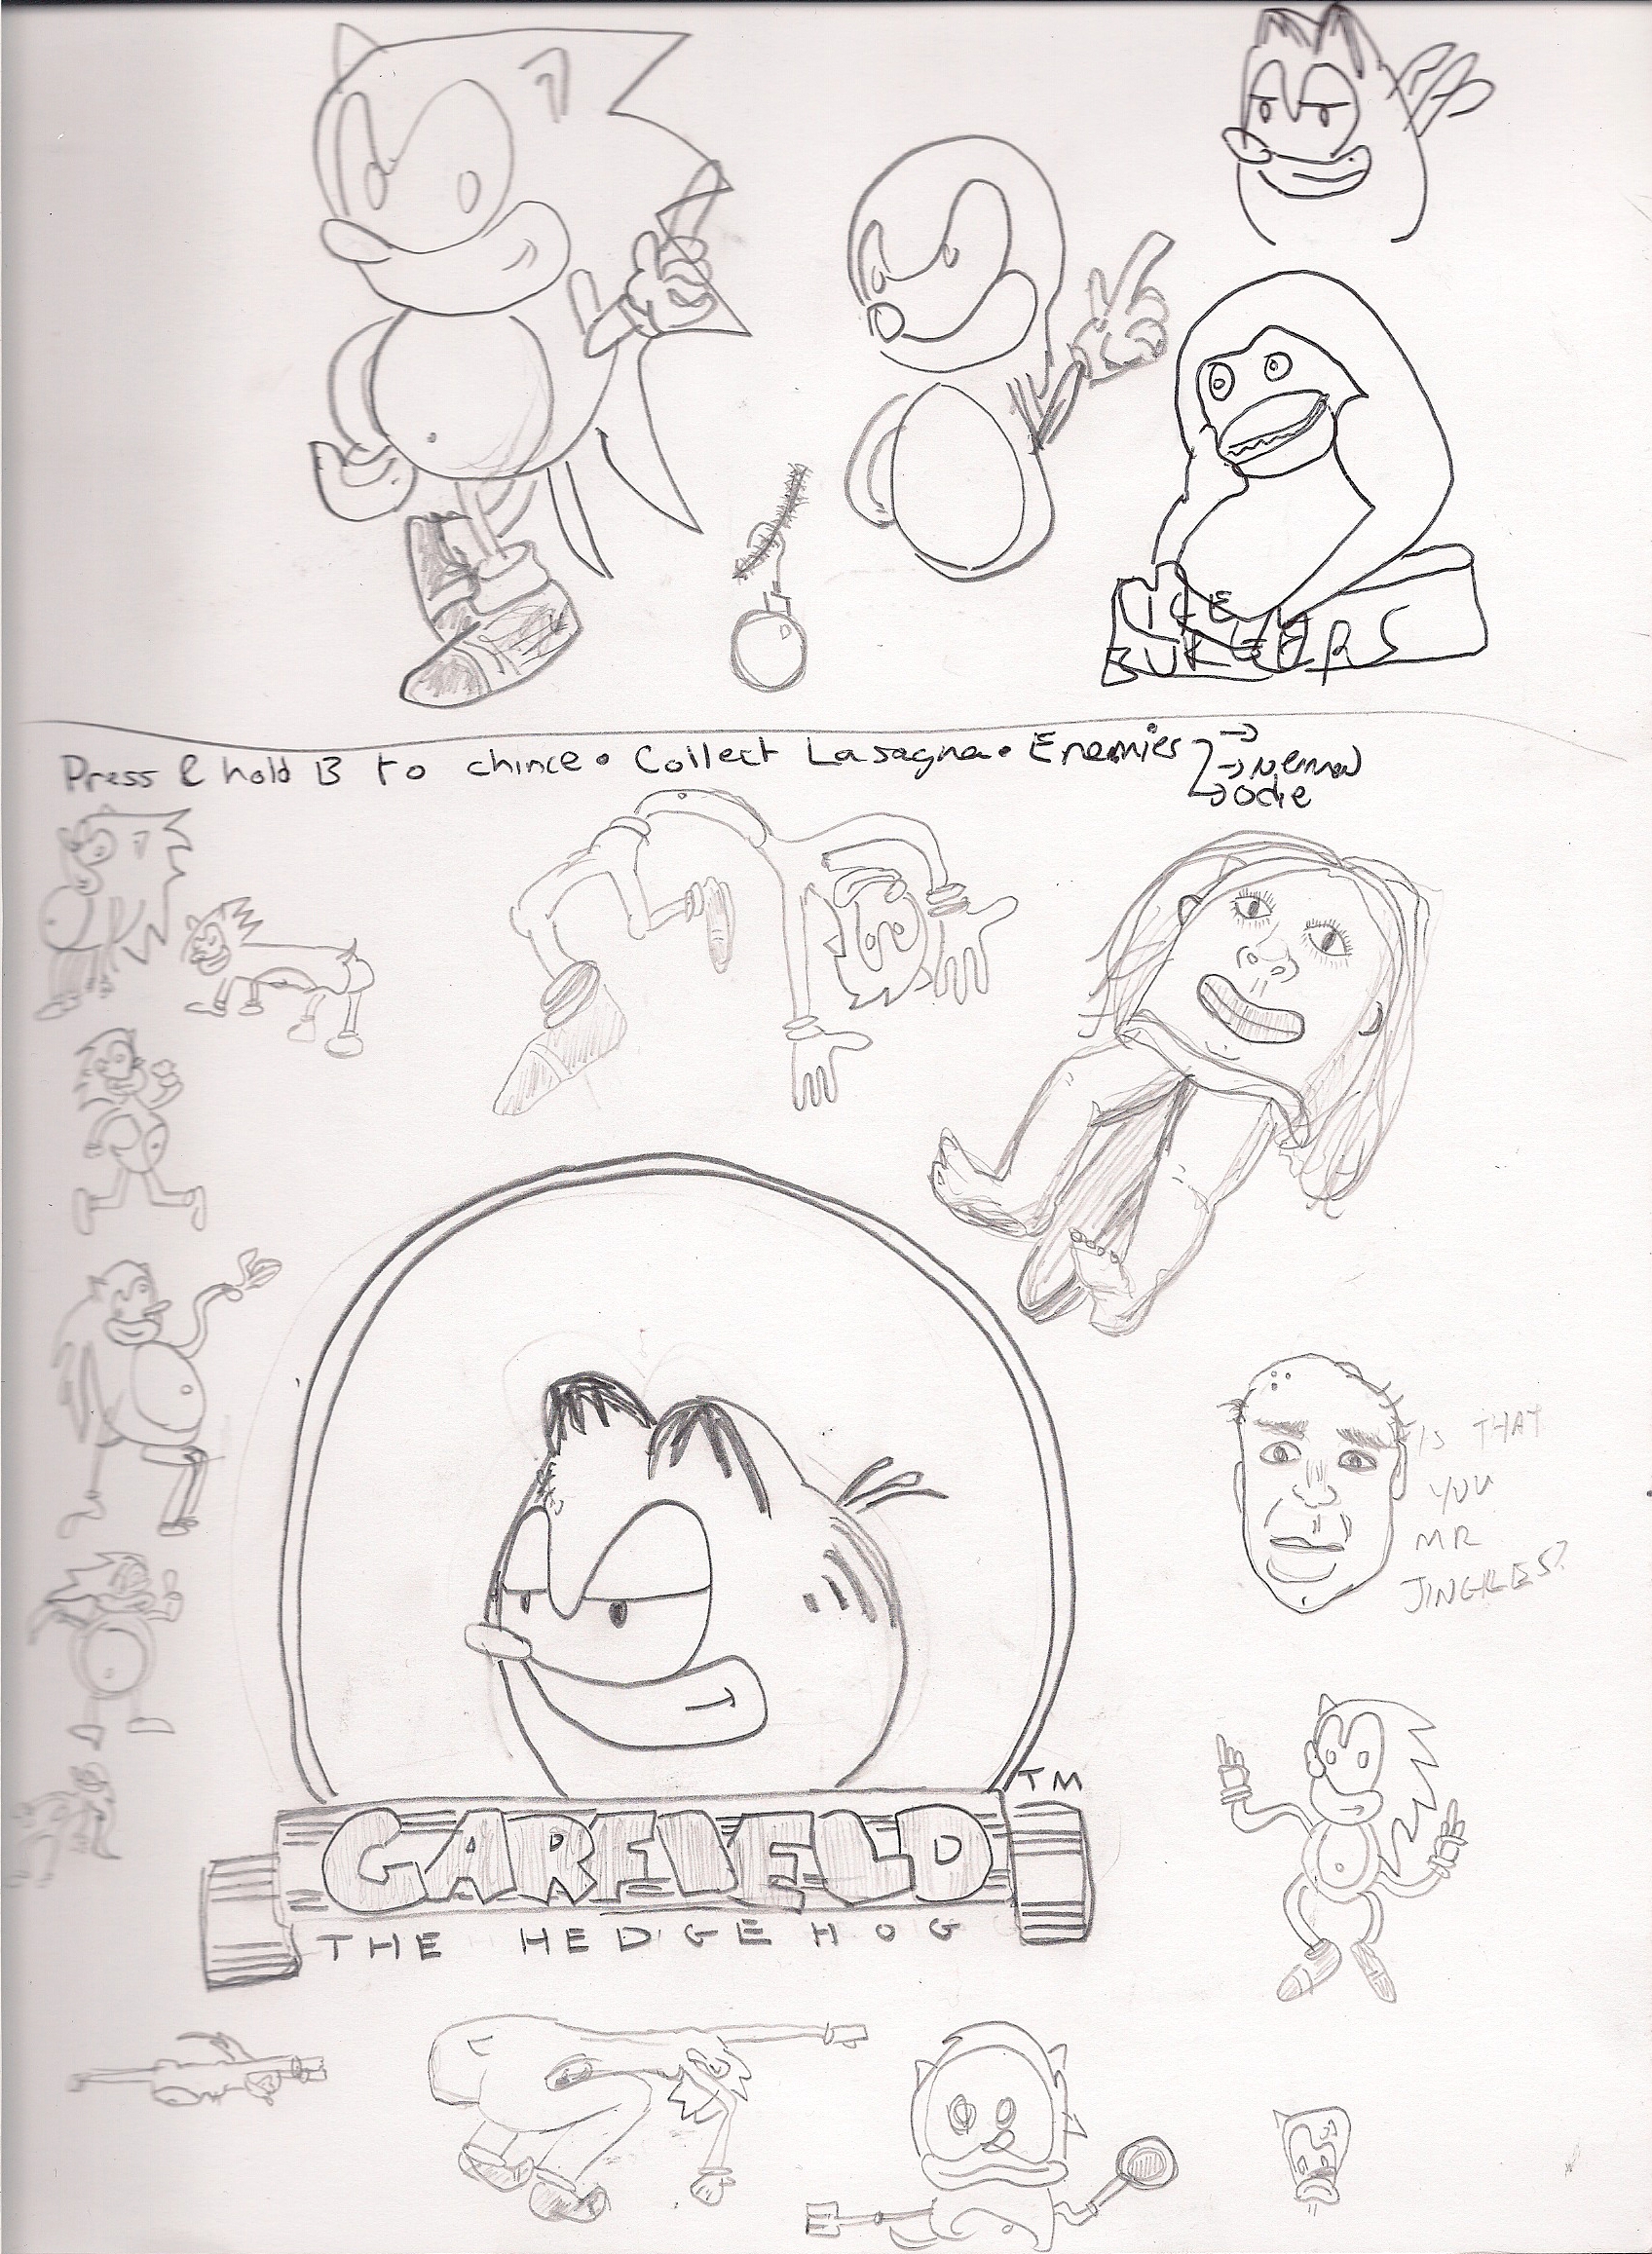 ICE
BURGERS
Press & hold B to chince • Collect Lasagna • Enemies →
→ Nermal
→ Odie
IS THAT
YOU
MR
JINGLES?
TM
GARFIELD
THE HEDGEHOG